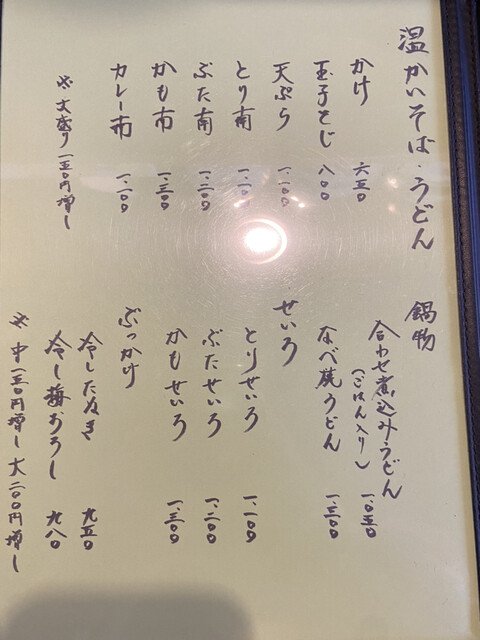 温かいそば・うどん
かけ 六五〇
玉子とじ 八〇〇
天ぷら 一、一〇〇
とり南 一、一〇〇
ぶた南 一、二〇〇
かも南 一、三〇〇
カレー南 一、一〇〇
※大盛り一五〇円増し
鍋物
合わせ煮込みうどん
(ごはん入り) 一、〇五〇
なべ焼うどん 一、三〇〇
せいろ
とりせいろ 一、一〇〇
ぶたせいろ 一、二〇〇
かもせいろ 一、三〇〇
ぶっかけ
冷したぬき 九五〇
冷し梅おろし 九八〇
※中一五〇円増し大二〇〇円増し